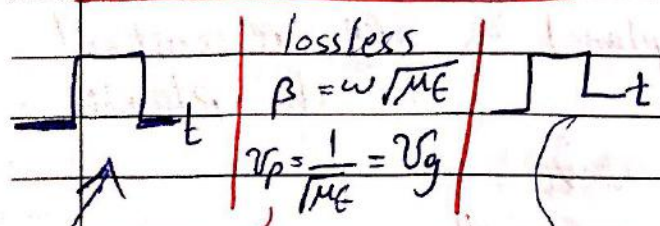 lossless
β = ω√με
t
t
Vp = 1/√με = Vg